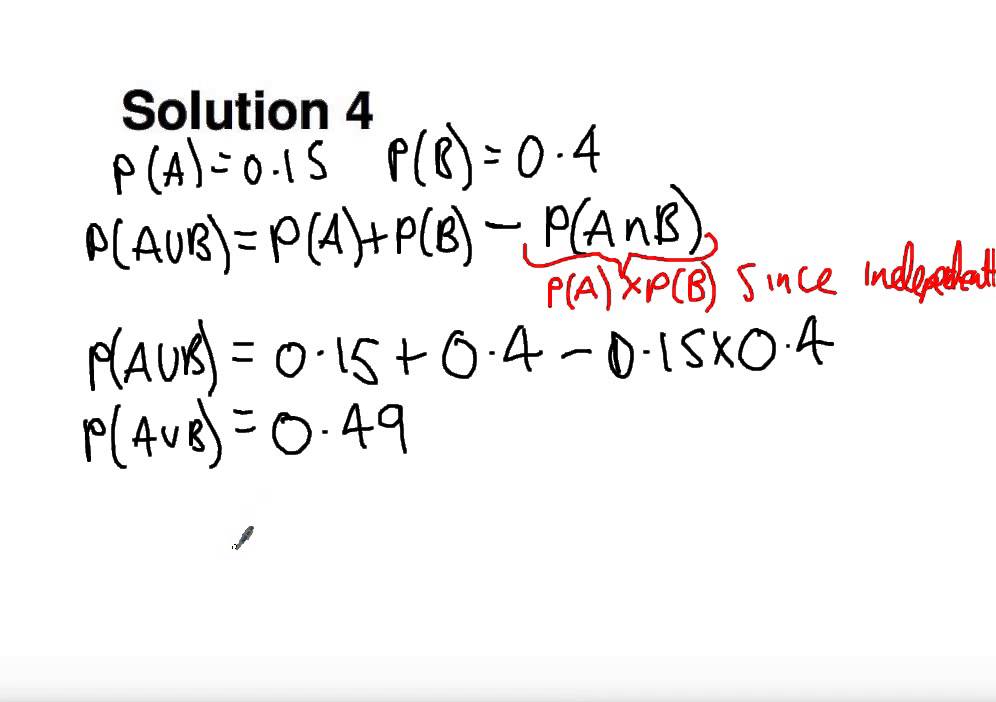 Solution 4
P(A)=0.15 P(B)=0.4
P(A∪B)=P(A)+P(B) - P(A∩B)
P(A)×P(B) Since
P(A∪B) = 0.15 + 0.4 - 0.15×0.4
P(A∪B) = 0.49